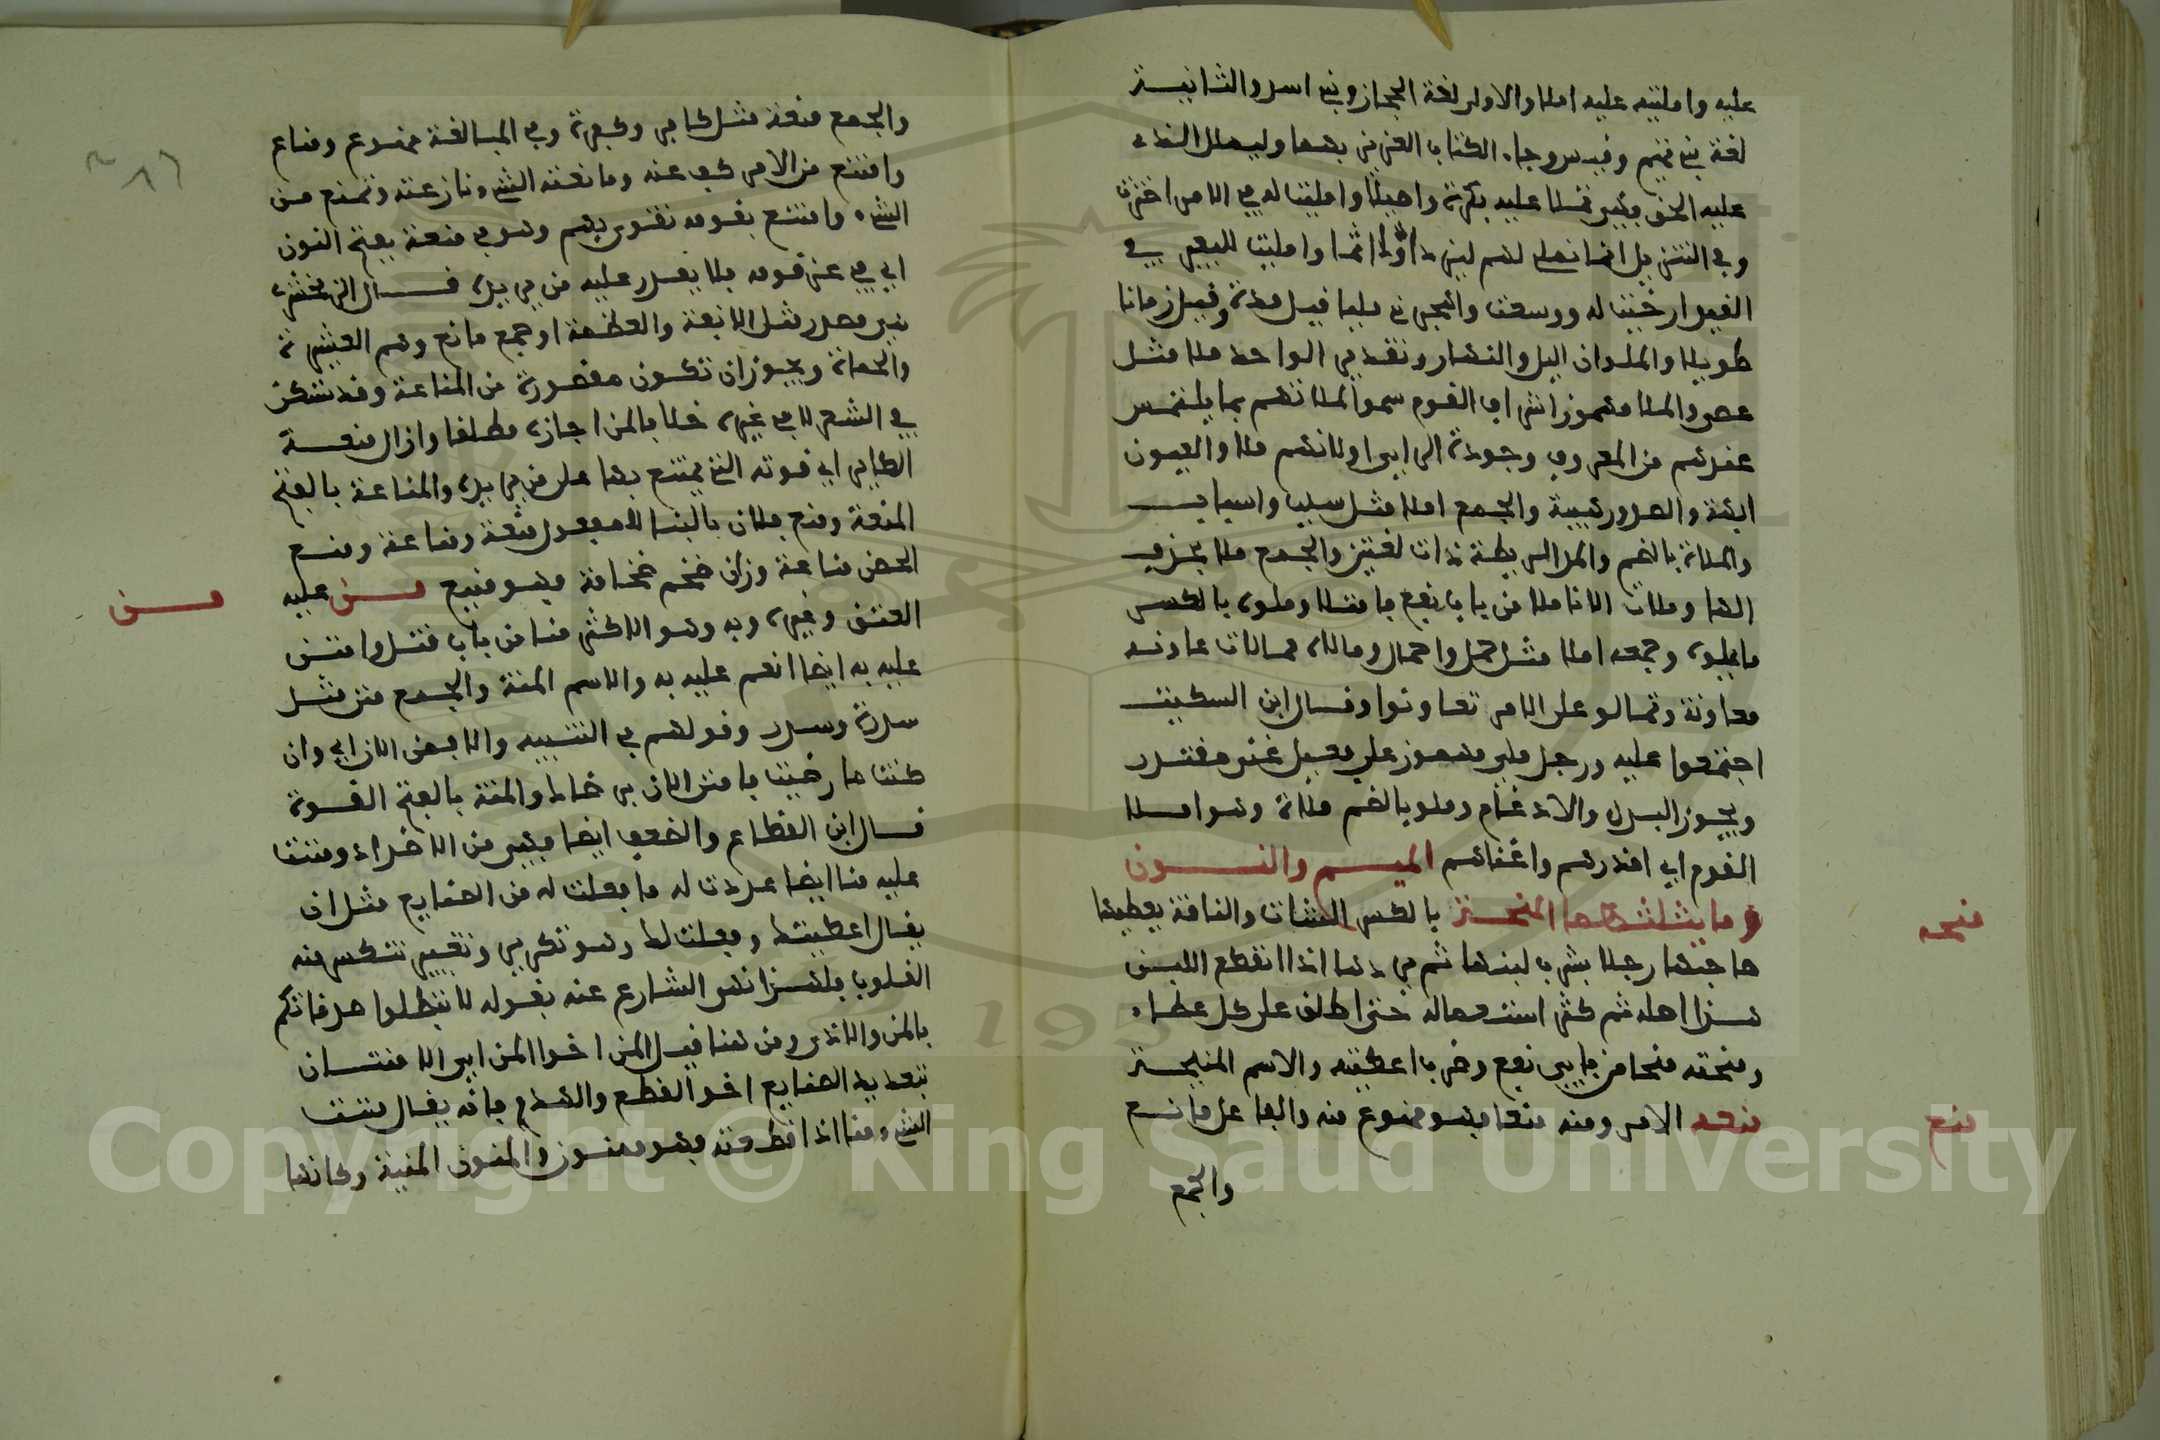 عليه وامليته عليه املاء والاولى لغة الحجاز وبني اسد والثانية
لغة بني تميم وقيس وجاء الكتاب العزيز بهما وليملل الذي
عليه الحق وفهي تملى عليه بكرة واصيلا وامليت له في الامر اخرت
وفي التنزيل انما نملي لهم ليزدادوا اثما وامليت للبعير في
القيد ارخيت له ووسعت واهجرني مليا قيل مدة وقيل زمانا
طويلا والملوان اليل والنهار وتقدير الواحد ملا مثل
عصى والملا مهموز اشراف القوم سموا لملائهم بما يلتمس
عندهم من المعروف وجودة الراي او لانهم ملا والعيون
ابهة والصدور هيبة والجمع املا مثل سبب واسباب
والملاة بالضم والمد الريطة ذات لفقين والجمع ملا بحذف
الها وملات الانا ملا من باب نفع فامتلا وملوه بالكسر
ما يملوه وجمعه املا مثل حمل واحمال ومالاه ممالات عاونه
معاونة وتمالو على الامر تعاونوا وقال ابن السكيت
اجتمعوا عليه ورجل ملي مهموز على فعيل غني مقتدر
ويجوز البدل والادغام وملو بالضم ملاة وهو املا
القوم اي اقدرهم واغناهم الميم والنون
وما يثلثهما المنحة بالكسر الشات والناقة يعطيها
صاحبها رجلا يشرب لبنها ثم يردها اذا انقطع اللبن
هذا اصله ثم كثر استعماله حتى اطلق على كل عطاء
ومنحته منحا من بابي نفع وضرب اعطيته والاسم المنيحة
منعه الامر ومنه منعا فهو ممنوع منه والفاعل مانع
والجمع
منحه
منع
والجمع منعة مثل كافر وكفرة وفي المبالغة منوع ومناع
وامتنع من الامر كف عنه ومانعته الشيء نازعته وتمنع من
الشيء وامتنع بقومه تقوى بهم وهو في منعة بفتح النون
اي في عز قومه فلا يقدر عليه من يريده قال الزمخشري
هي مصدر مثل الانفة والعظمة او جمع مانع وهم العشيرة
والحماة ويجوز ان تكون مقصورة من المناعة وقد تسكن
في الشعر لا في غيره خلافا لمن اجازه مطلقا وازال منعة
الطاير اي قوته التي يمتنع بها على من يريده والمناعة بالفتح
المنعة ومنع فلان بالبنا للمفعول منعة ومناعة ومنع
الحصن مناعة وزان ضخم ضخامة فهو منيع من عليه
العتق وغيره وبه وهو الاكثر منا من باب قتل وامتن
عليه به ايضا انعم عليه به والاسم المنة والجمع منن مثل
سدرة وسدر وقولهم في التنبيه والا فمن الان اي وان
كنت ما رضيت فامنن الان برضاك والمنة بالفتح القوة
قال ابن القطاع والضعف ايضا فهي من الاضداد ومننت
عليه منا ايضا عددت له ما فعلت له من الصنايع مثل ان
يقال اعطيتك وفعلت لك وهو تكرير وتعيير تنكسر منه
القلوب فلهذا نهى الشارع عنه بقوله لا تبطلوا صدقاتكم
بالمن والاذى ومن هنا قيل المن اخوا المن اي الامتنان
بتعديد الصنايع اخو القطع والهدم فانه يقال مننت
الشيء منا اذا قطعته فهو ممنون والمنون المنية وكانها
من